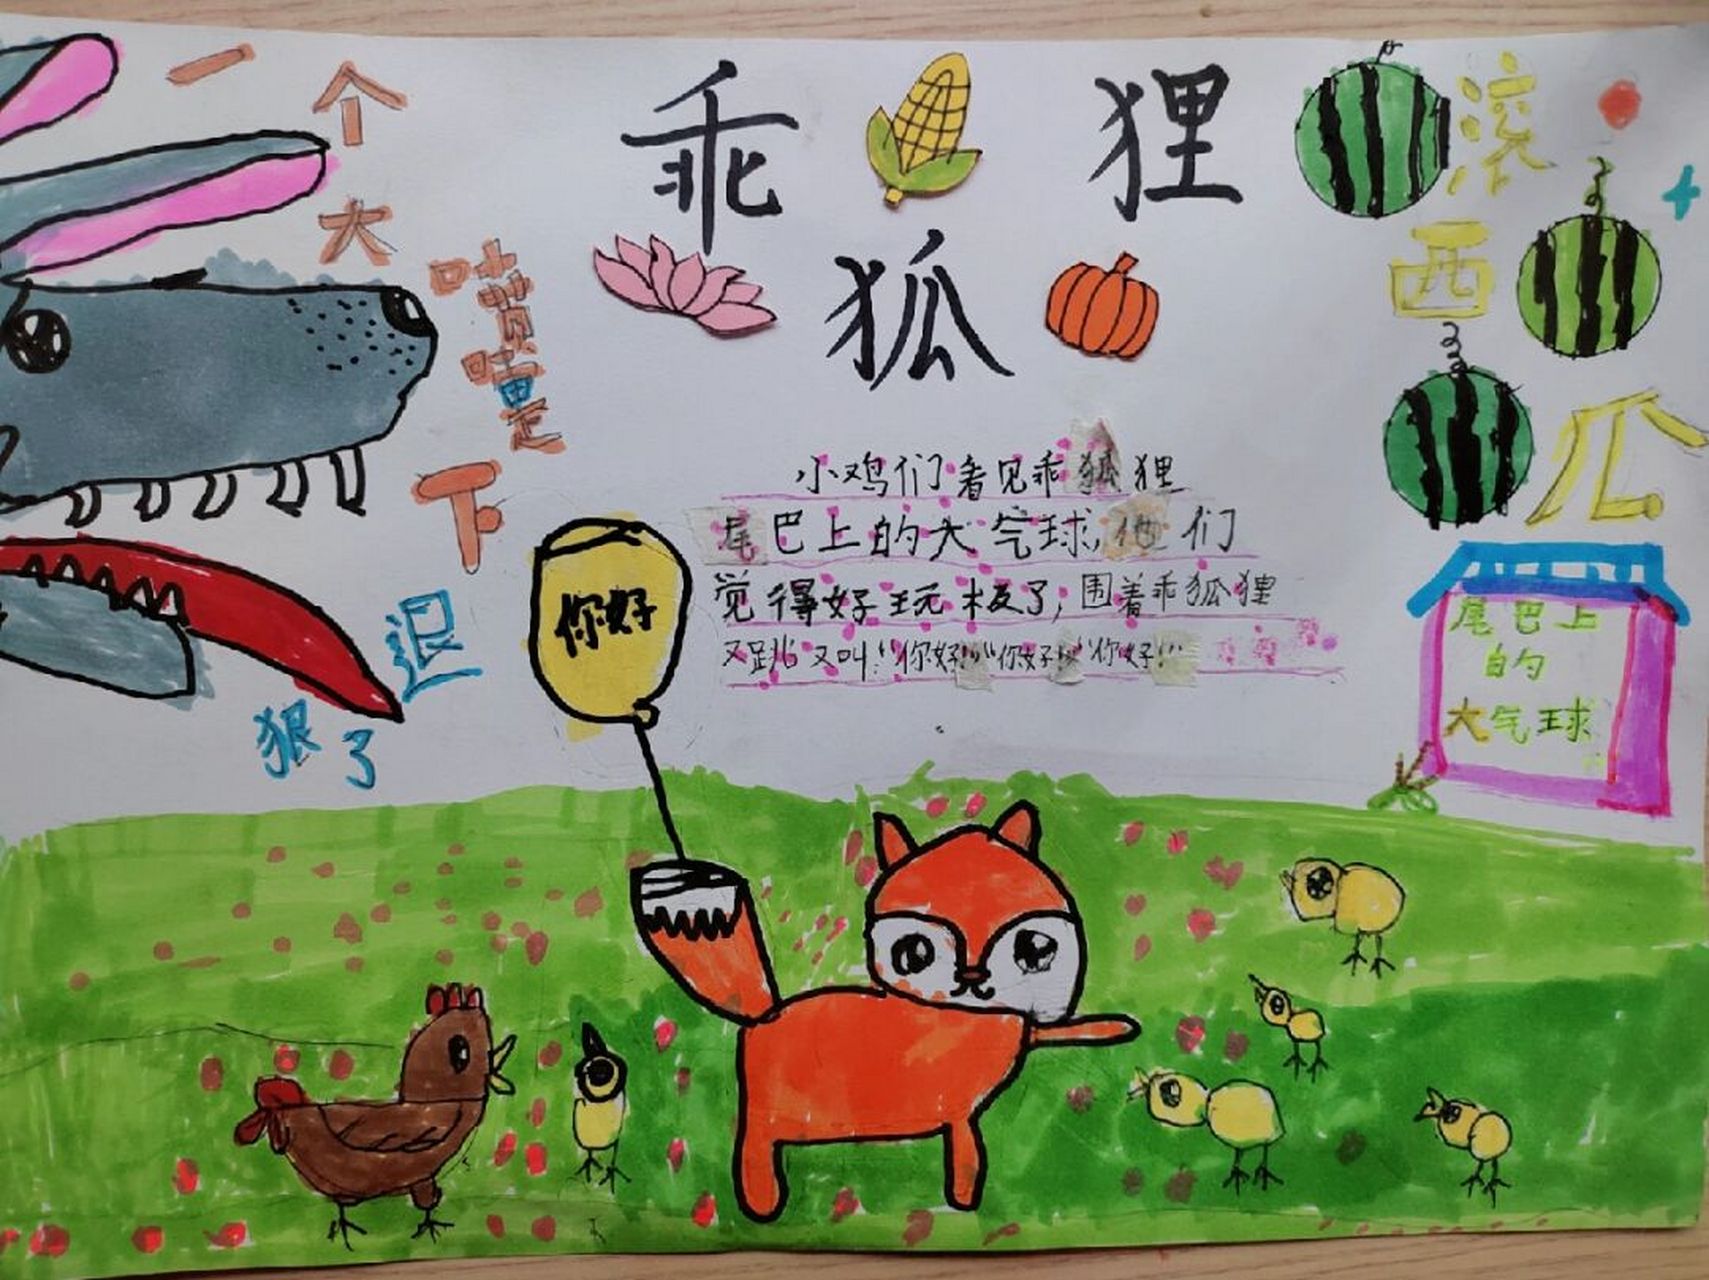 乖狐狸
一个大喷嚏
下退
狠了
滚西瓜
小鸡们看见乖狐狸
尾巴上的大气球,他们
觉得好玩极了,围着乖狐狸
又跳又叫:“你好!”“你好!”“你好!”
你好
尾巴上
的
大气球